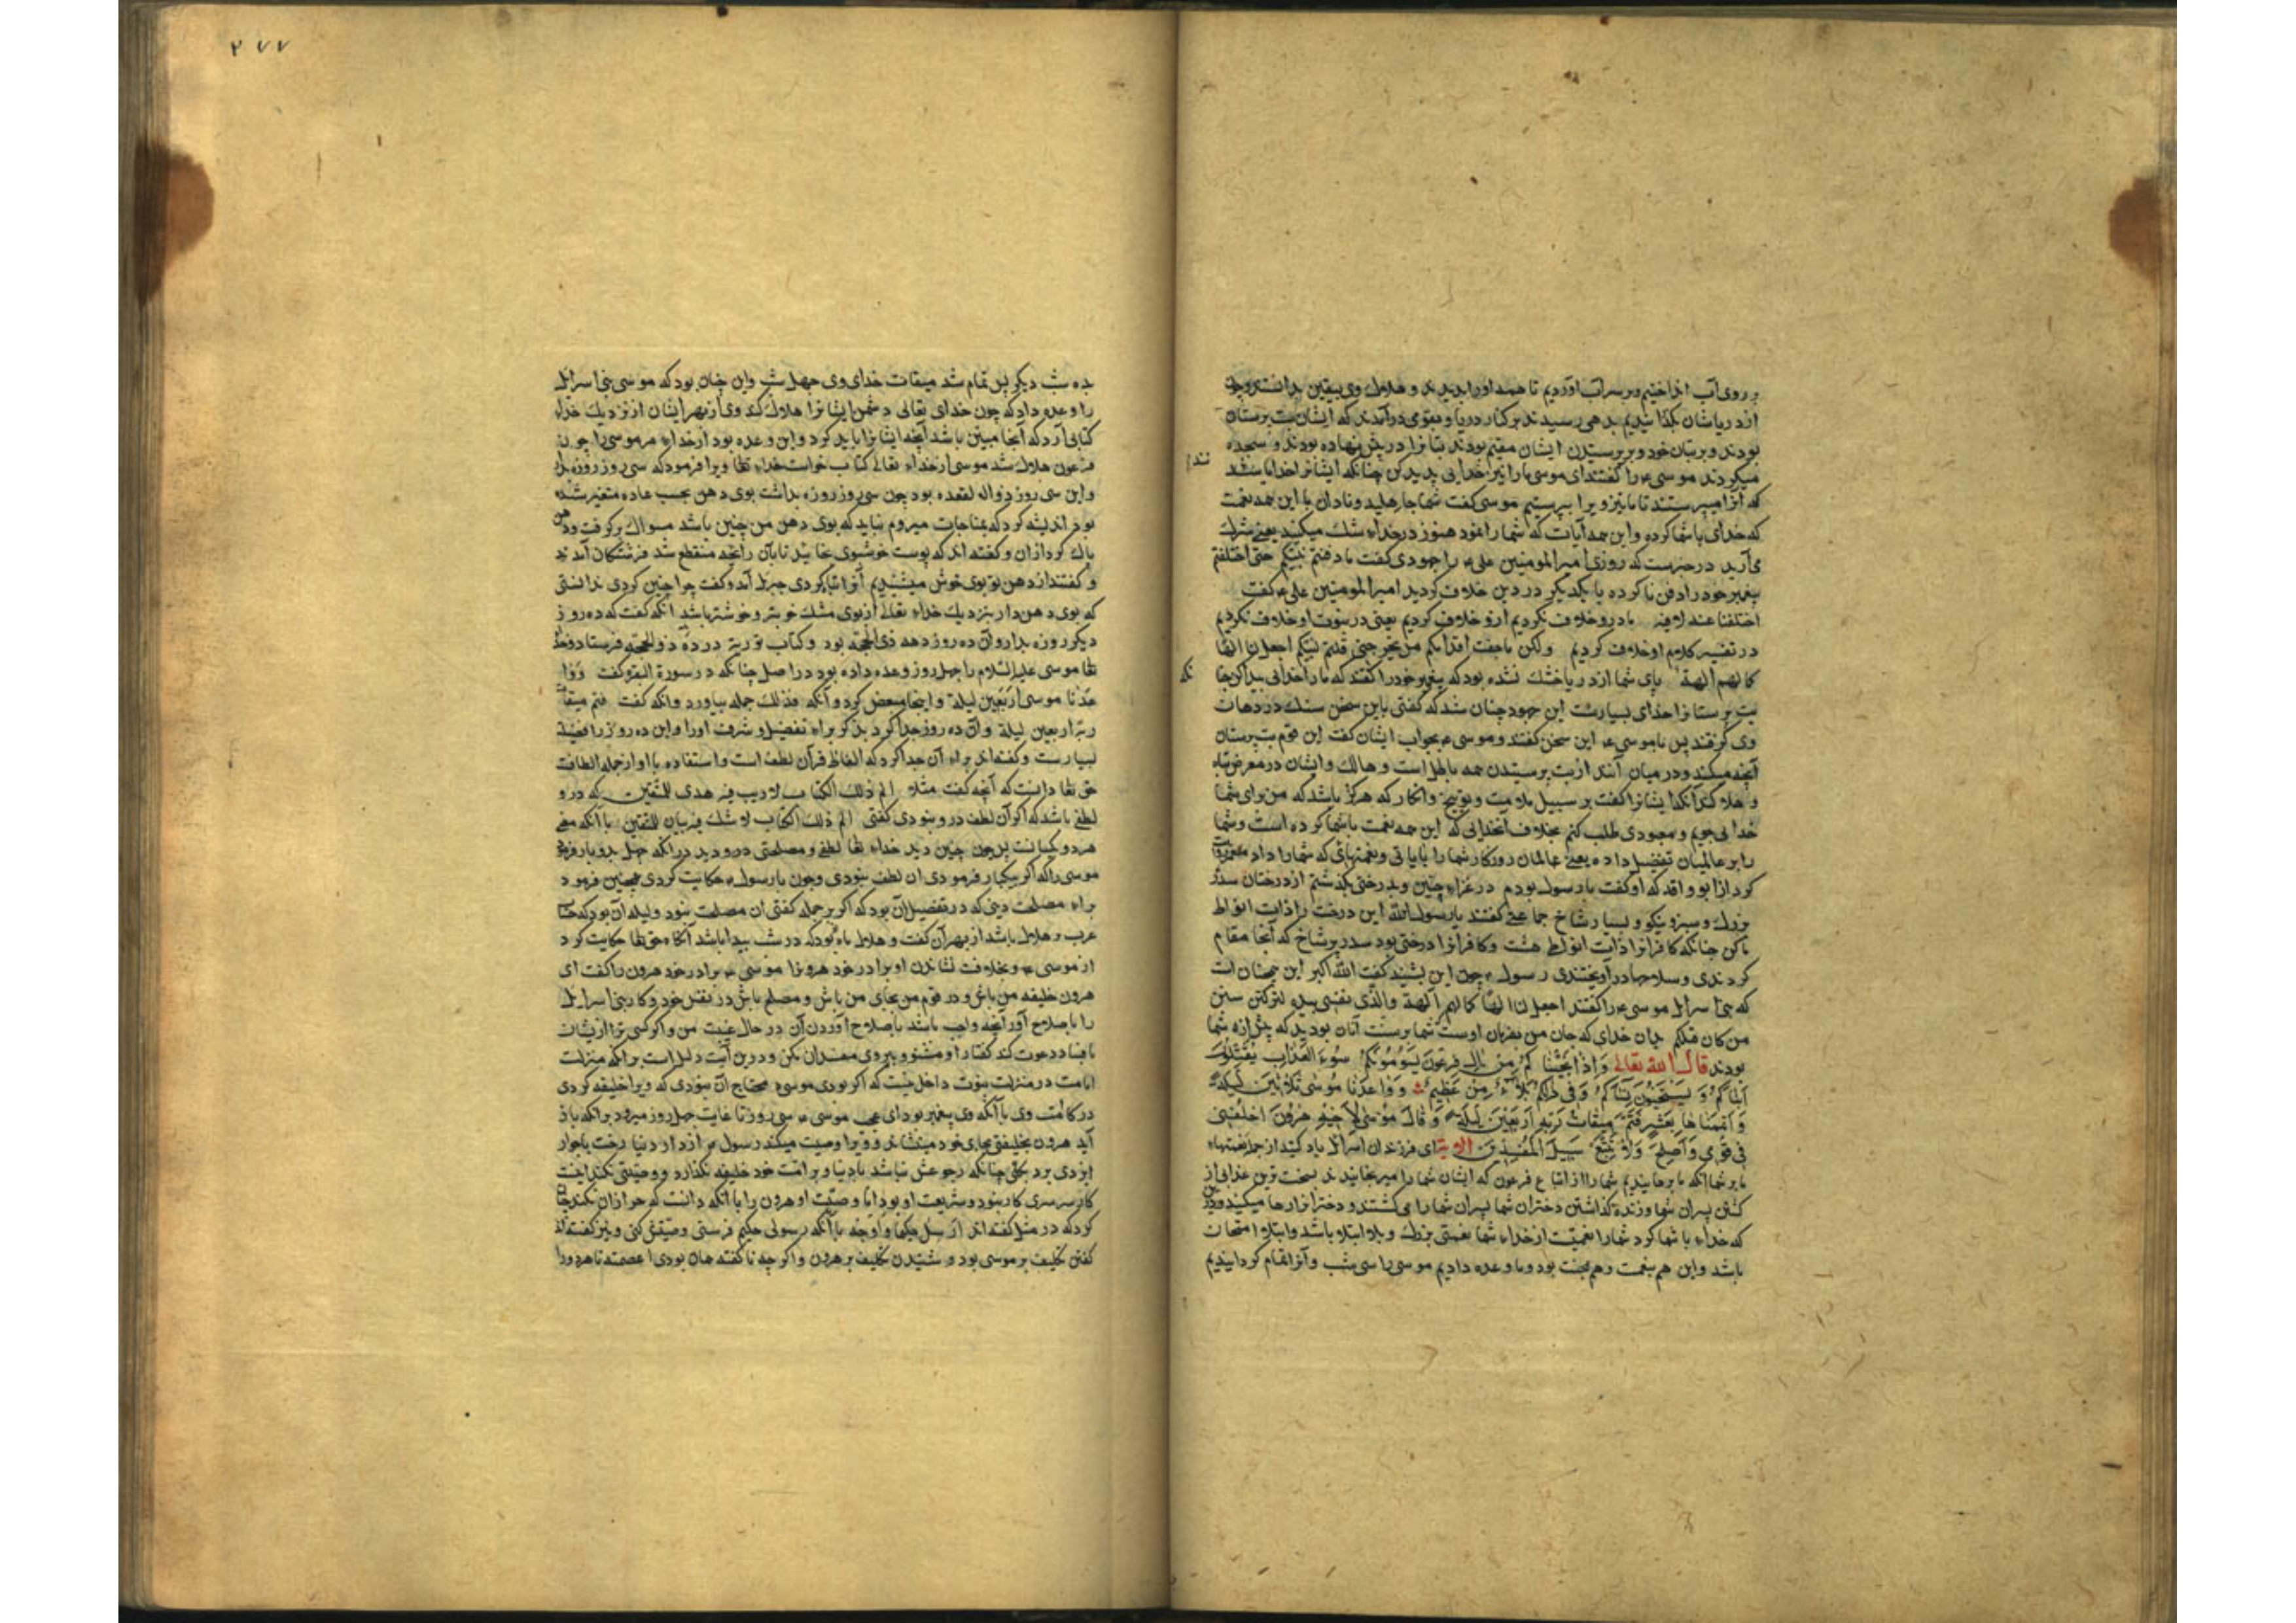 بر روی آب انداختیم و بر سر آب آوردیم تا همه او را بدیدند و هلاك وی بیقین بدانستند و چون
از دریاشان بگذاشتیم بدهی رسیدند بر کنار دریا و بقومی درآمدند که ایشان بت پرستان
بودند و بر بتان خود و بر پرستیدن ایشان مقیم بودند بتانرا در پیش نهاده بودند و سجده
میکردند موسی ع را گفتند ای موسی ما را نیز خدایی پدید کن چنانکه ایشانرا خدایا
که آنرا میپرستند تا ما نیز ویرا بپرستیم موسی گفت شما جاهلید و نادان با این همه نعمت
که خدای با شما کرده و این همه آیات که شما را نمود هنوز در خداء شك میکنید یعنی شرك
می آرید در خبرست که روزی امیر المومنین علی ع را جهودی گفت ما دفنتم نبیّکم حتی اختلفتم
پیغمبر خود را دفن ناکرده با یکدیگر در دین خلاف کردید امیر المومنین علی ع گفت
اختلفنا عنه لا فیه ما درو خلاف نکردیم ازو خلاف کردیم یعنی در نبوت او خلاف نکردیم
در تفسیر کلام او خلاف کردیم ولکن ما جفت اقدامکم من البحر حتی قلتم لنبیکم اجعل لنا الها
کما لهم الهة پای شما از دریا خشك نشده بود که پیغمبر خود را گفتند که ما را خدایی پیدا کن چنا
بت پرستانرا خدای بسیارست این جهود چنان شد که گفتی باین سخن سنك در دهان
وی کرفتند پس با موسی ع این سخن گفتند و موسی ع بجواب ایشان گفت این قوم بت پرستان
آنچه میکنند و در میان آنند از بت پرستیدن همه باطل است و هالك و ایشان در معرض تباه
و هلاکند آنکه ایشانرا گفت بر سبیل ملامت و توبیخ و انکار که هرکز باشد که من برای شما
خدایی جویم و معبودی طلب کنم بخلاف آنخدایی که این همه نعمت با شما کرده است و شما
را بر عالمیان تفضیل داده یعنی عالمیان روزکار شما را بآیاتی و نعمتهایی که شما را داد
کرد از ابو واقد که او گفت با رسول بودم در غزاء حنین و بدرختی بکذشتم از درختان سدر
بزرك و سبز و نیکو و بسیار شاخ جماعتی گفتند یا رسول الله این درخت را ذات انواط
ما کن چنانکه کافرانرا ذات انواط هست و کافرانرا درختی بود سدر پر شاخ که آنجا مقام
کردندی و سلاحها در آویختندی رسول ع چون این بشنید گفت الله اکبر این همچنان است
که بنی اسرائل موسی ع را گفتند اجعل لنا الها کما لهم آلهة والذی نفسی بیده لترکبن سنن
من کان قبلکم بدان خدای که جان من بفرمان اوست شما بر سنت آنان بودید که پیش از شما
بودند قال الله تعالی وَاِذْ اَنْجَیْنَا کُمْ مِنْ آلِ فِرْعَوْنَ یَسُومُونَکُمْ سُوءَ الْعَذَابِ یُقَتِّلُونَ
اَبْنَاءَکُمْ وَ یَسْتَحْیُونَ نِسَاءَکُمْ وَ فِی ذٰلِکُمْ بَلَاءٌ مِنْ عَظِیمٌ وَ وَاعَدْنَا مُوسٰی ثَلَاثِینَ لَیْلَةً
وَ اَتْمَمْنَاهَا بِعَشْرٍ فَتَمَّ مِیقَاتُ رَبِّهِ اَرْبَعِینَ لَیْلَةً وَ قَالَ مُوسٰی لِاَخِیهِ هٰرُونَ اخْلُفْنِی
فِی قَوْمِی وَ اَصْلِحْ وَلَا تَتَّبِعْ سَبِیلَ الْمُفْسِدِینَ الایة ای فرزندان اسرائل یاد کنید از جمله نعمتهاء
ما بر شما آنکه ما برهانیدیم شما را از اتباع فرعون که ایشان شما را میرنجانیدند بسخت ترین عذابی از
کشتن پسران شما و زنده گذاشتن دختران شما پسران شما را می کشتند و دخترانرا رها میکردند و در
که خداء با شما کرد شما را نعمتیست از خداء شما نعمتی بزرك و بلا ابتلا باشد و ابتلا و امتحان
باشد و این هم نعمت و هم محنت بود و ما وعده دادیم موسی را سی شب و آنرا تمام کردانیدیم
۲۷۷
بده شب دیکر پس تمام شد میقات خدای وی چهل شب و این چنان بود که موسی بنی اسرائل
را وعده داد که چون خدای تعالی دشمن ایشانرا هلاك کند وی از بهر ایشان از نزدیك خداء
کتابی آرد که آنجا مبین باشد آنچه ایشانرا باید کرد و این وعده بود از خداء مر موسی را چون
فرعون هلاك شد موسی از خداء تعالی کتاب خواست خداء تعا ویرا فرمود که سی روز روزه دار
و این سی روز ذو القعده بود چون سی روز روزه بداشت بوی دهن بحسب عاده متغیر شده
بود اندیشه کرد که بمناجات میروم نباید که بوی دهن من چنین باشد مسواك برکرفت و دهن
پاك کرد ازان و گفته اند که پوست خوشبوی خایید تا بآن رایحه منقطع شد فرشتکان آمدند
و گفتند از دهن تو بوی خوش میشنیدیم آنرا تباه کردی جبرئل آمد و گفت چرا چنین کردی ندانستی
که بوی دهن دار بنزدیك خداء تعالی از بوی مشك خوبتر و خوشتر باشد انکه گفت که ده روز
دیکر روزه بدار و آن ده روز دهه ذی الحجه بود و کتاب توریة در ده ذو الحجه فرستاد و خدا
تعا موسی علیه السلام را چهل روز وعده داده بود در اصل چنانکه در سورة البقره گفت وَوٰا
عَدْنا موسی اَرْبَعِینَ لیلة و اینجا مبعض کرد و آنکه فذلك جمله بیاورد و انکه گفت فتم میقات
ربه اربعین لیلة و آن ده روز جدا کرد بذکر براء تفضیل و شرف او را و این ده روز را فضیلة
بسیارست و گفته اند براء آن جدا کرد که الفاظ قرآن لطف است و استفاده با او از جمله الطافت
حق تعا دانست که آنچه گفت مثلا الم ذلك الکتاب لا ریب فیه هدی للمتقین که درو
لطفی باشد که اکر آن لطف درو نبودی گفتی الم ذلك الکتاب لا شك فیه بیان للمتقین با آنکه معنی
هر دو یکسانست پس چون چنین دید خداء تعا لطفی و مصلحتی درو دید در انکه چهل بدو بار فرمود
موسی را که اکر بیکبار فرمودی ان لطف نبودی و چون با رسول ع حکایت کردی همچنین فرمود
براء مصلحت دینی که در تفضیل آن بود که اکر بر جمله گفتی ان مصلحت نبود و لیله آن بود که حساب
عرب و هلال باشد از بهر آن گفت و هلال ماه بود که در شب پیدا باشد آنکاه حق تعا حکایت کرد
از موسی ع و بخلافت نشاندن او برادر خود هرونرا موسی ع برادر خود هرون را گفت ای
هرون خلیفه من باش و در قوم من بجای من باش و مصلح باش در نفس خود و کار بنی اسرائل
را با صلاح آور آنچه واجب باشد باصلاح آوردن آن در حال غیبت من و اکر کسی ترا ازیشان
با فساد دعوت کند گفتار او مشنو و پیروی مفسدان مکن و درین آیت دلیل است بر انکه منزلت
امامت در منزلت نبوّت داخل نیست که اکر بودی موسی ع محتاج آن نبودی که ویرا خلیفه کردی
در کا امت وی با آنکه وی پیغمبر بود ای عجب موسی ع سی روز تا غایت چهل روز میرود بر انکه باز
آید هرون بخلیفتی بجای خود مینشاند و ویرا وصیت میکند رسول ع از دار دنیا رخت باجوار
ایزدی برد بحقی چنانکه رجوعش نباشد بادنیا و بر امّت خود خلیفه نکذارد و وصیّتی نکند اینت
کار سرسری کار نبود و شریعت او بود اما وصیّت او هرون را با انکه دانست که جز ازان نکند
کرد که در مثل گفته اند اَرْسِل حکیما و اَوْصِهِ با آنکه رسولی حکیم فرستی وصیّتش کنی و نیز گفته اند
گفتن تکلیف بر موسی بود و شنیدن تکلیف بر هرون و اکر چه ناگفته همان بودی